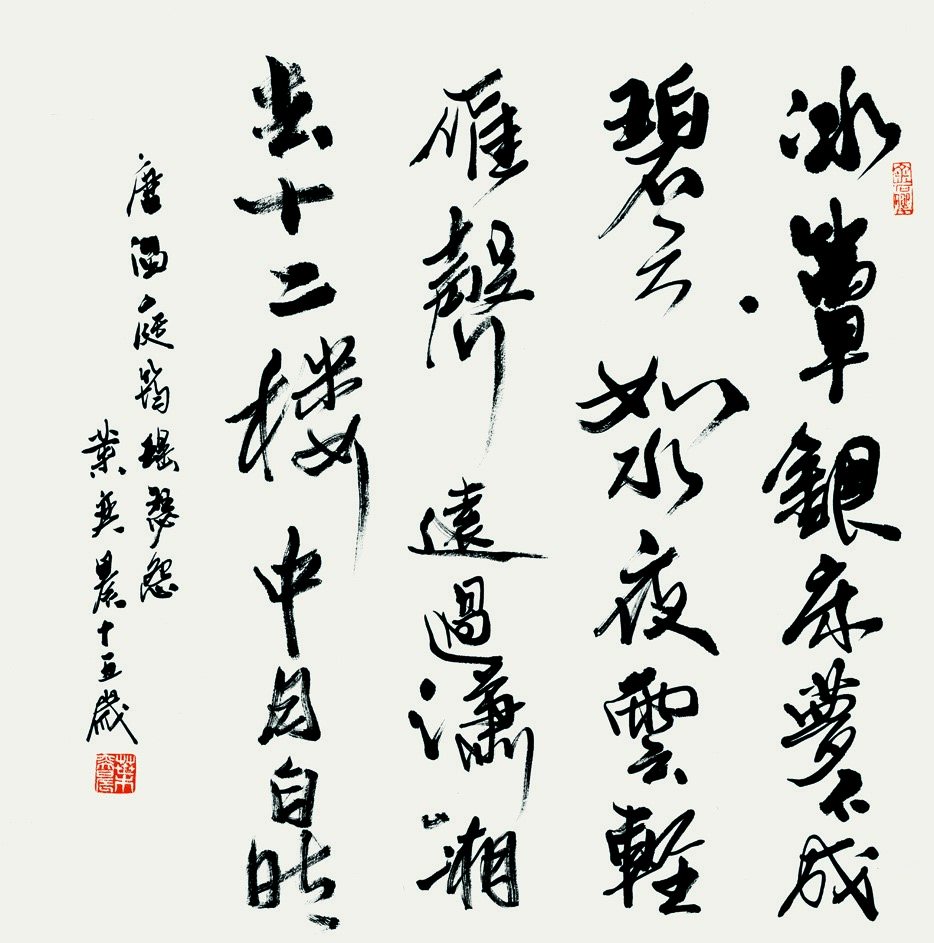 冰簟銀床夢不成
碧天如水夜雲輕
雁聲遠過瀟湘
去十二楼中月自明
唐温庭筠瑶瑟怨
葉奕晨十五歲